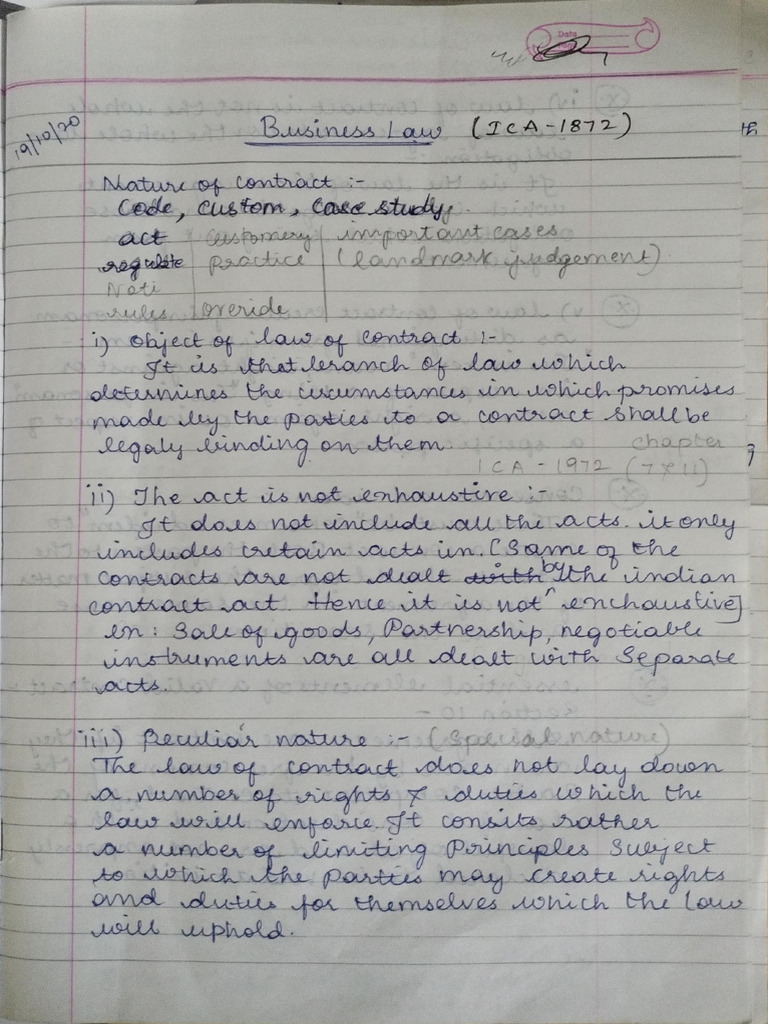 Data
19/10/20
Business Law (ICA-1872)
Nature of contract :-
Code, custom, case study,
act | customery | important cases
regulate | practice | (landmark judgement)
Noti
rules | overide
i) Object of law of contract :-
It is that branch of law which
determines the circumstances in which promises
made by the parties to a contract shall be
legaly binding on them
chapter
ICA - 1972 (7 & 11)
ii) The act is not exhaustive :-
It does not include all the acts. it only
includes cretain acts in. [Some of the
contracts are not dealt with by the indian
contract act. Hence it is not enchaustive]
en: Sale of goods, Partnership, negotiable
instruments are all dealt with Separate
acts.
iii) Peculiar nature :- (Special nature)
The law of contract does not lay down
a number of rights & duties which the
law will enforce. It consits rather
a number of limiting Principles Subject
to which the parties may create rights
and duties for themselves which the law
will uphold.